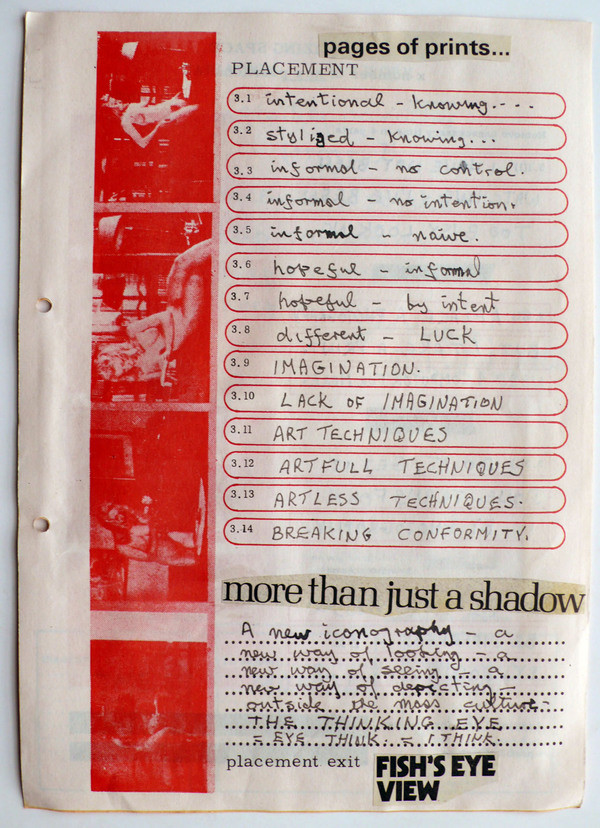 pages of prints...
PLACEMENT
3.1 intentional - knowing. - - -
3.2 stylized - knowing...
3.3 informal - no control.
3.4 informal - no intention.
3.5 informal - naive.
3.6 hopeful - informal
3.7 hopeful - by intent
3.8 different - LUCK
3.9 IMAGINATION.
3.10 LACK OF IMAGINATION
3.11 ART TECHNIQUES
3.12 ARTFULL TECHNIQUES
3.13 ARTLESS TECHNIQUES.
3.14 BREAKING CONFORMITY.
more than just a shadow
A new iconography - a
new way of looking - a
new way of seeing - a
new way of depicting -
outside the mass culture -
THE THINKING EYE
= EYE THINK. = I THINK.
placement exit FISH'S EYE
VIEW